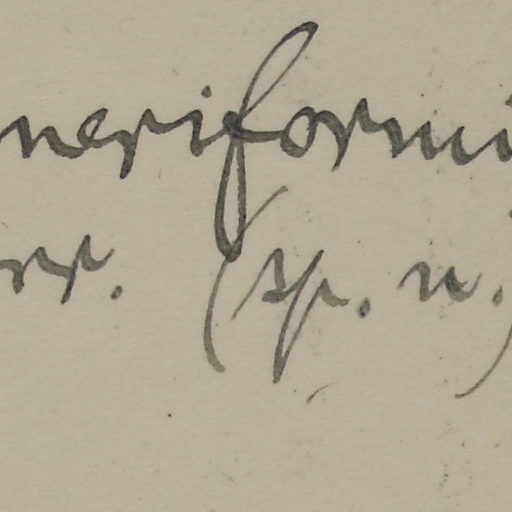 neriformi
(sp. n.)